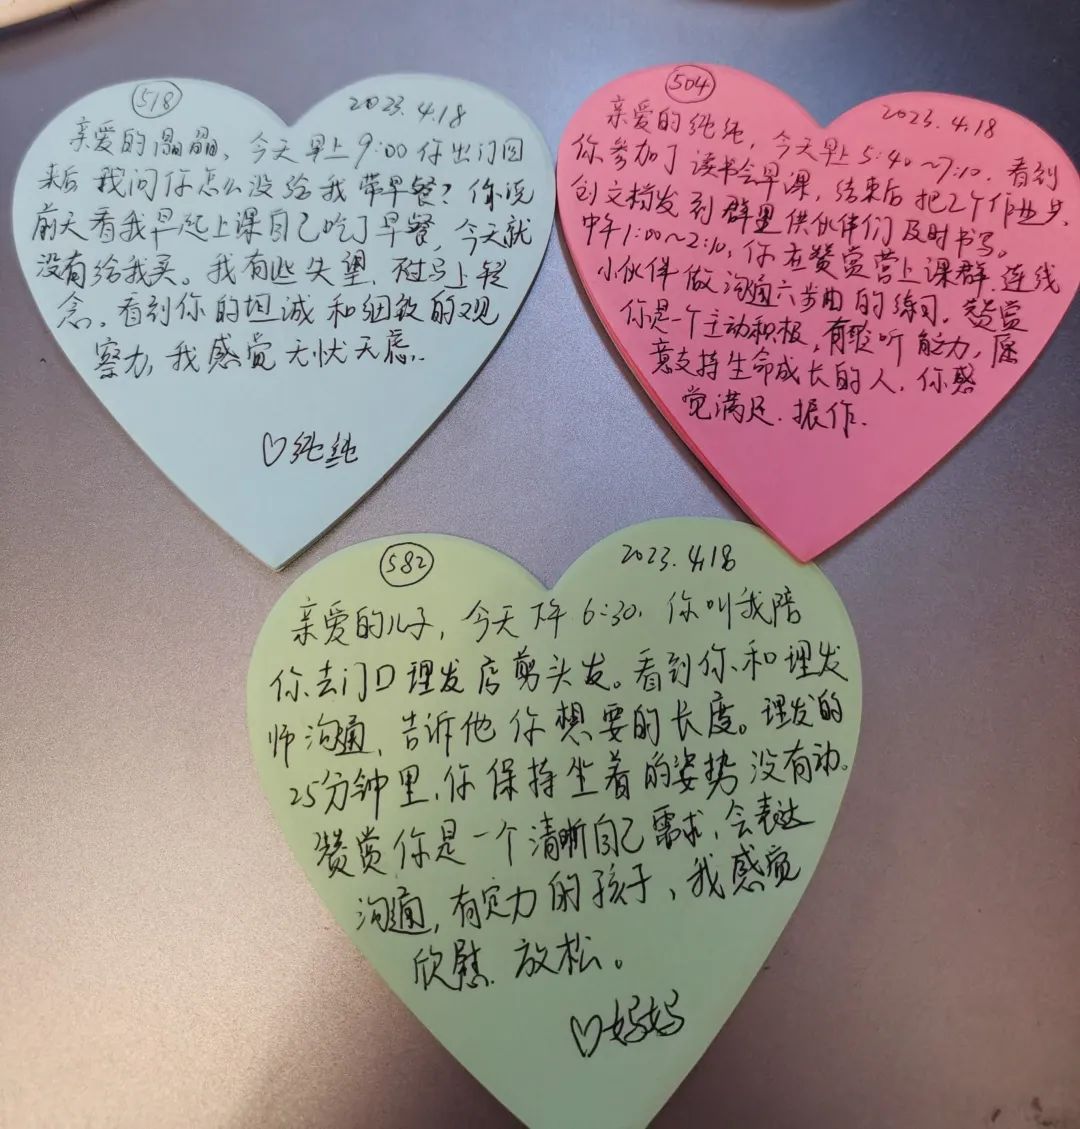 518
2023.4.18
亲爱的晶晶，今天早上9:00你出门回
来后我问你怎么没给我带早餐？你说
前天看我早起上课自己吃了早餐，今天就
没有给我买。我有些失望，不过马上转
念。看到你的坦诚和细致的观
察力，我感觉无忧无虑.
♡纯纯
504
2023.4.18
亲爱的纯纯，今天早上5:40~7:10，看到
你参加了读书会早课，结束后把2个作业共
创文档发到群里供伙伴们及时书写。
中午1:00~2:10，你在赞赏营上课群连线
小伙伴做沟通六步曲的练习，赞赏
你是一个主动积极，有聆听能力，愿
意支持生命成长的人. 你感
觉满足、振作.
582
2023.4.18
亲爱的儿子，今天下午6:30，你叫我陪
你去门口理发店剪头发。看到你和理发
师沟通，告诉他你想要的长度。理发的
25分钟里，你保持坐着的姿势没有动。
赞赏你是一个清晰自己需求，会表达
沟通，有定力的孩子，我感觉
欣慰、放松。
♡妈妈